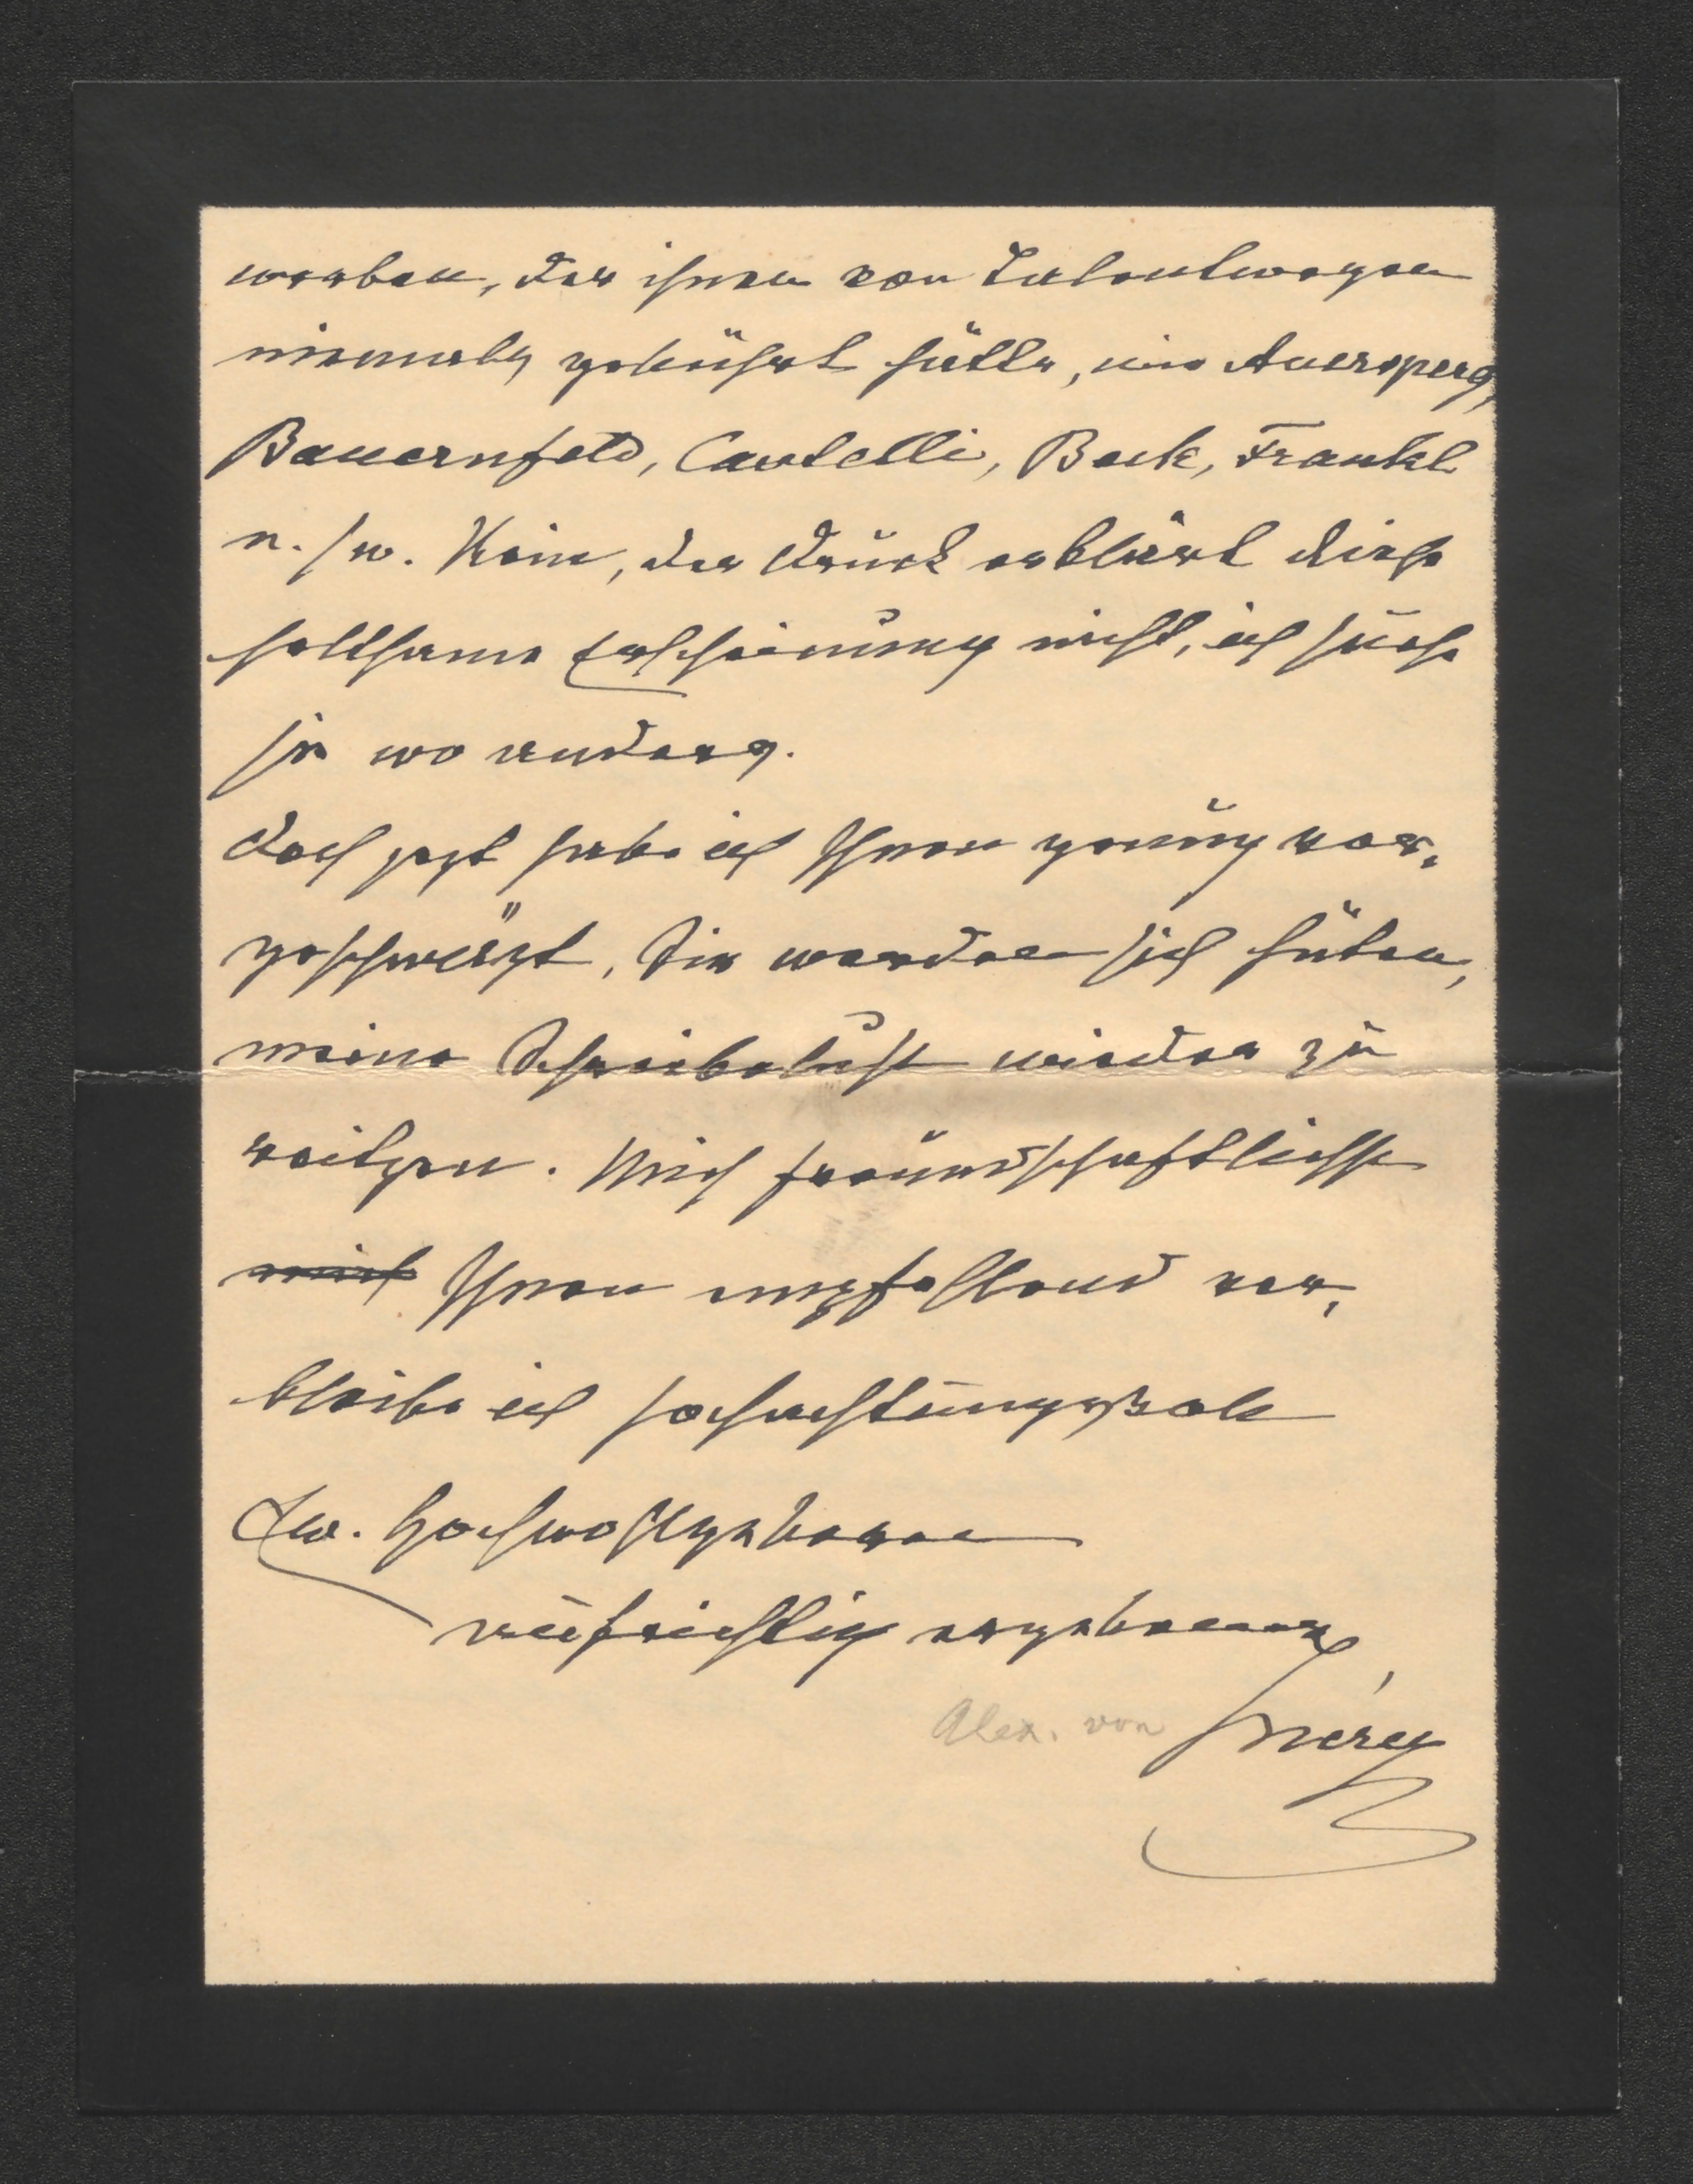 werben, der ihnen von Talentwegen
niemals gebührt hätte, wie Auersperg,
Bauernfeld, Castelli, Beck, Frankl
u. s w. Nein, der Druck erklärt diese
seltsame Erscheinung nicht, ich suche
sie wo anders.
Doch jezt habe ich Ihnen genug vor-
geschwäzt, Sie werden sich hüten,
meine Schreibelust wieder zu
reitzen. Mich freundschaftlichst
mich Ihnen empfehlend ver-
bleibe ich hochachtungsvoll
Ew. Hochwohlgeboren
aufrichtig ergebener,
Alex. von